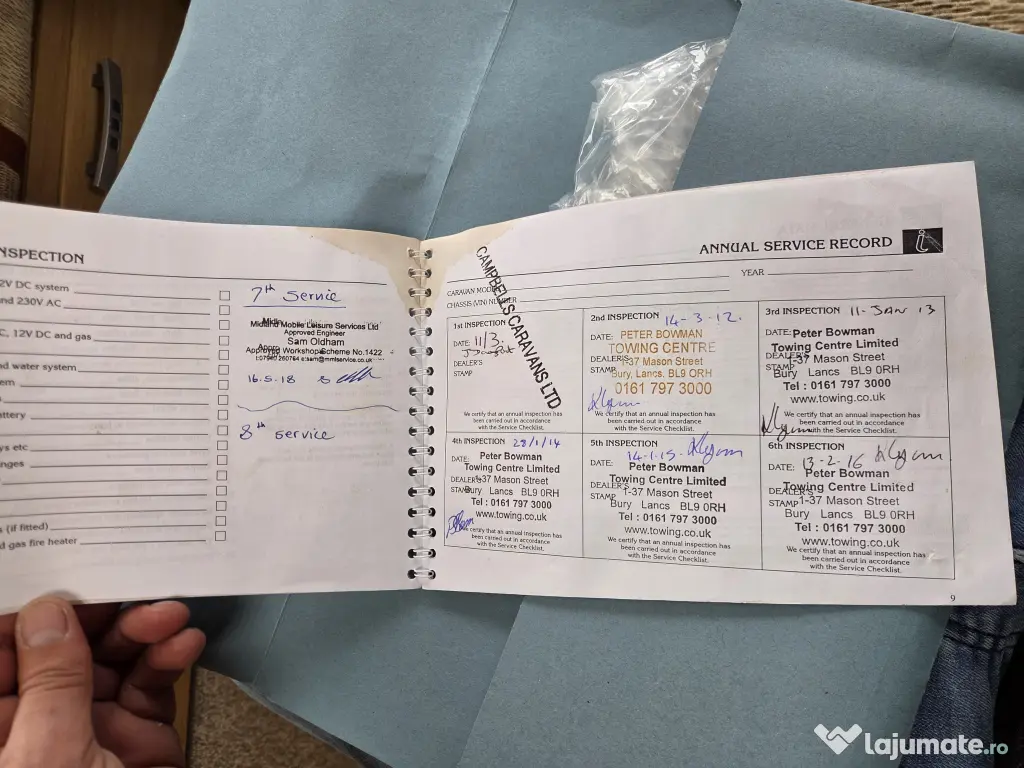 NSPECTION
2V DC system
nd 230V AC
C, 12V DC and gas
nd water system
em
ttery
ys etc
nges
s (if fitted)
d gas fire heater
7th Servie
Midland Mobile Leisure Services Ltd
Approved Engineer
Sam Oldham
Approved Workshop Scheme No.1422
16.5.18
8th service
ANNUAL SERVICE RECORD
YEAR
CARAVAN MODEL
CHASSIS (VIN) NUMBER
CAMPBELLS CARAVANS LTD
1st INSPECTION
DATE: 11/3.
DEALER'S
STAMP
We certify that an annual inspection has
been carried out in accordance
with the Service Checklist.
2nd INSPECTION 14-3-12.
DATE: PETER BOWMAN
TOWING CENTRE
DEALER'S 1-37 Mason Street
STAMP Bury, Lancs. BL9 0RH
0161 797 3000
We certify that an annual inspection has
been carried out in accordance
with the Service Checklist.
3rd INSPECTION 11-JAN 13
DATE: Peter Bowman
Towing Centre Limited
DEALER'S 1-37 Mason Street
STAMP Bury Lancs BL9 0RH
Tel : 0161 797 3000
www.towing.co.uk
We certify that an annual inspection has
been carried out in accordance
with the Service Checklist.
4th INSPECTION 28/1/14
DATE: Peter Bowman
Towing Centre Limited
DEALER'S 1-37 Mason Street
STAMP Bury Lancs BL9 0RH
Tel : 0161 797 3000
www.towing.co.uk
We certify that an annual inspection has
been carried out in accordance
with the Service Checklist.
5th INSPECTION
DATE: 14-1-15
Peter Bowman
Towing Centre Limited
DEALER'S 1-37 Mason Street
STAMP Bury Lancs BL9 0RH
Tel : 0161 797 3000
www.towing.co.uk
We certify that an annual inspection has
been carried out in accordance
with the Service Checklist.
6th INSPECTION
DATE: 13-2-16
Peter Bowman
Towing Centre Limited
DEALER'S 1-37 Mason Street
STAMP Bury Lancs BL9 0RH
Tel : 0161 797 3000
www.towing.co.uk
We certify that an annual inspection has
been carried out in accordance
with the Service Checklist.
9
lajumate.ro